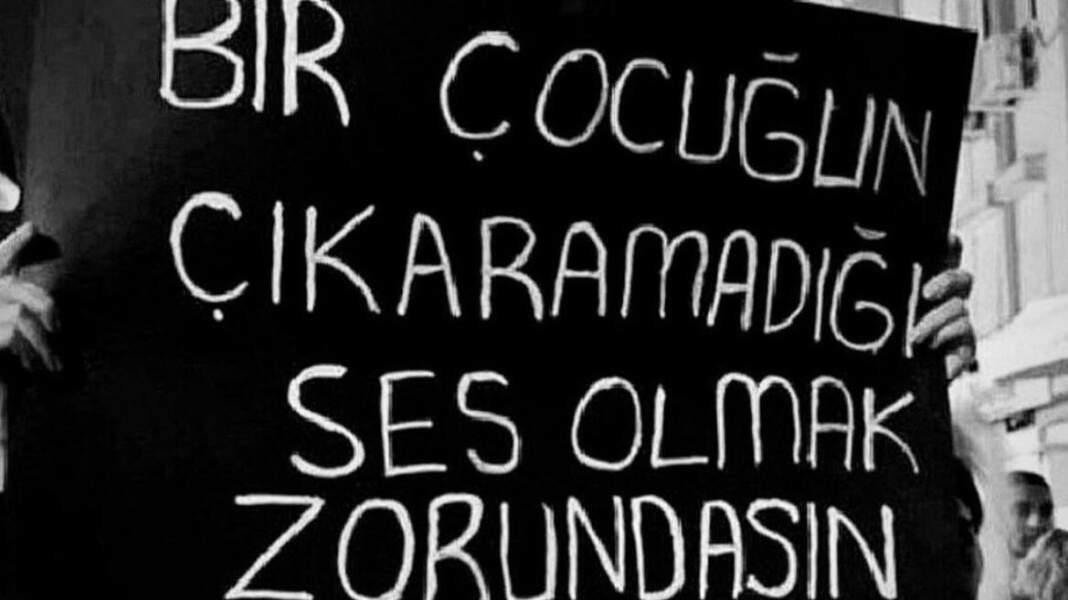 BİR ÇOCUĞUN
ÇIKARAMADIĞI
SES OLMAK
ZORUNDASIN